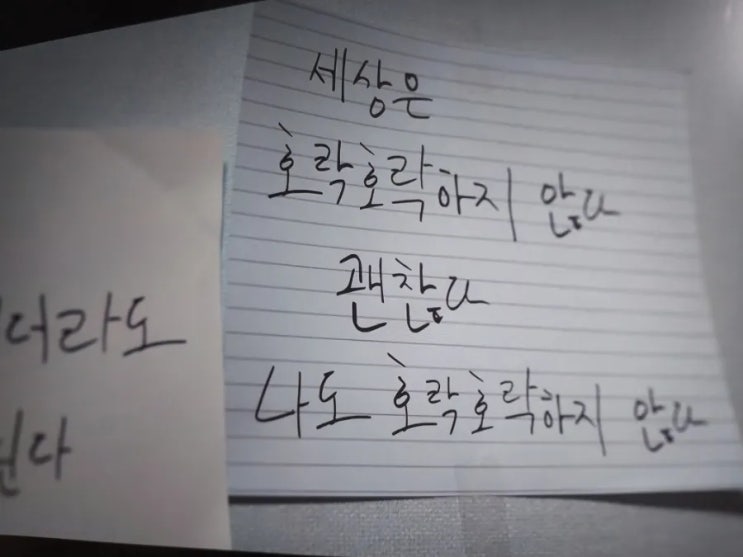 세상은
호락호락하지 않다
괜찮다
나도 호락호락하지 않다
더라도